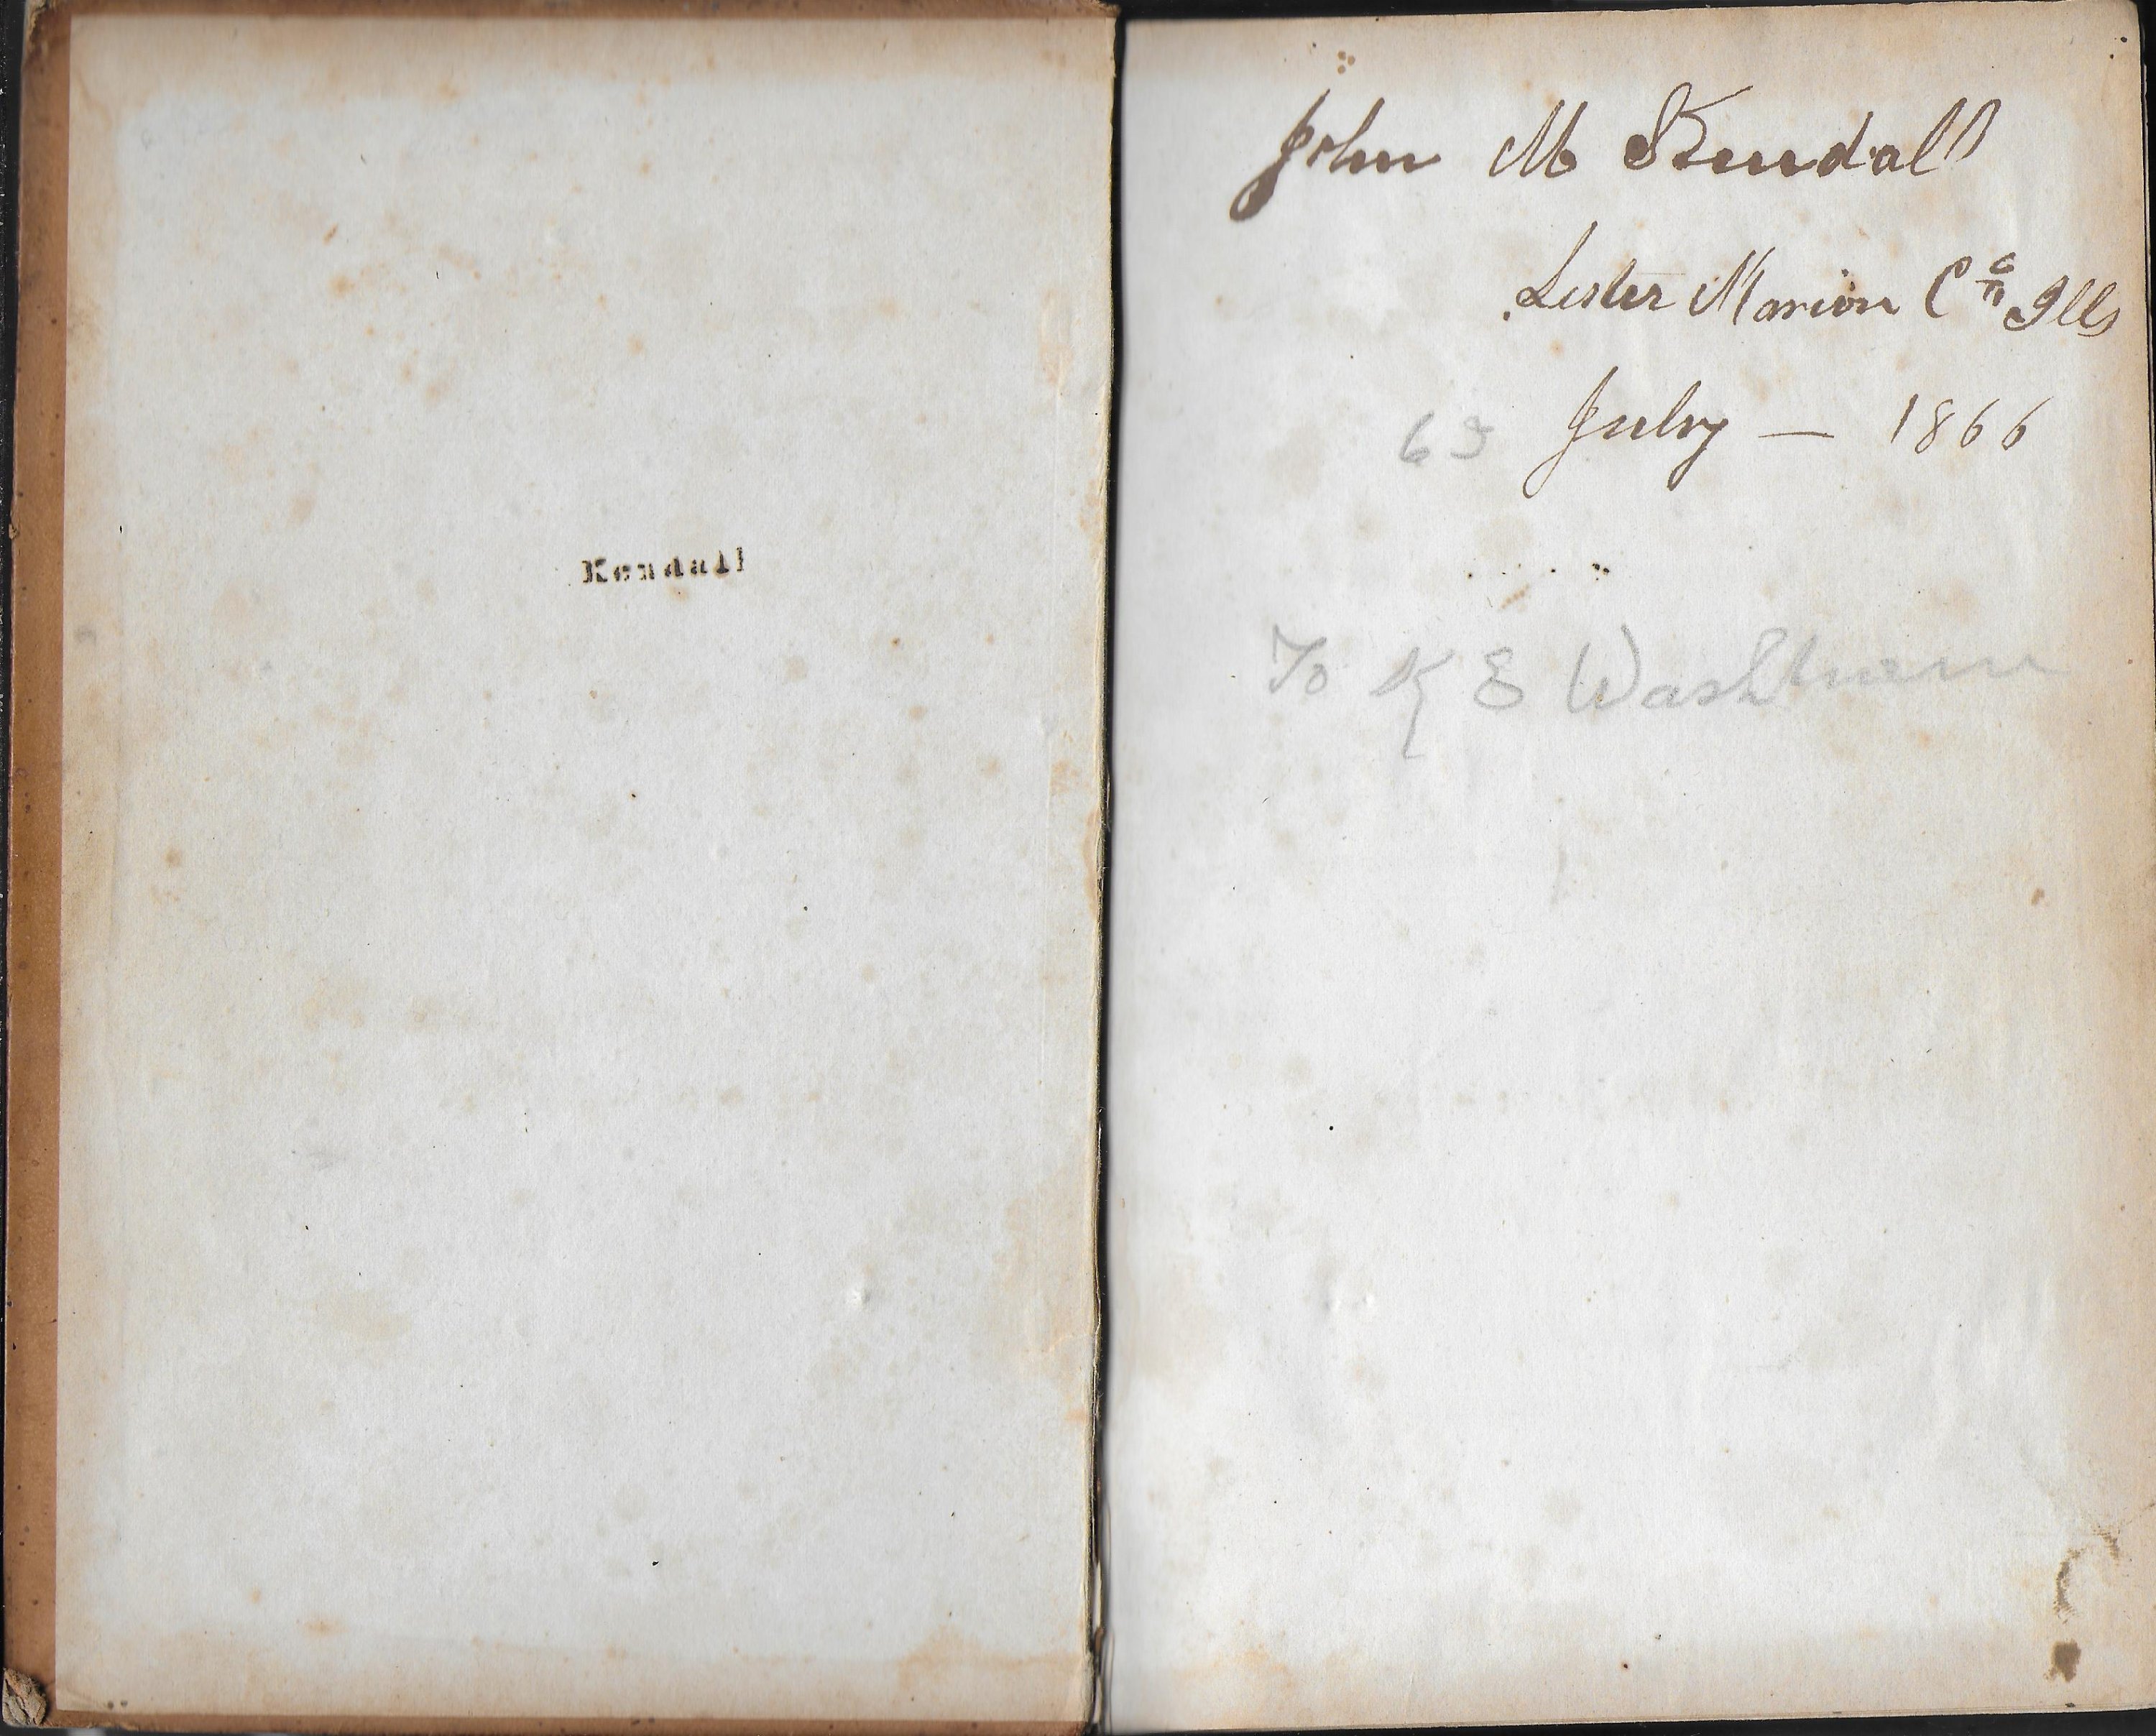 Kendall
John M Kendall
Lester Marion Co Ills
63 July — 1866
To K E Washburn